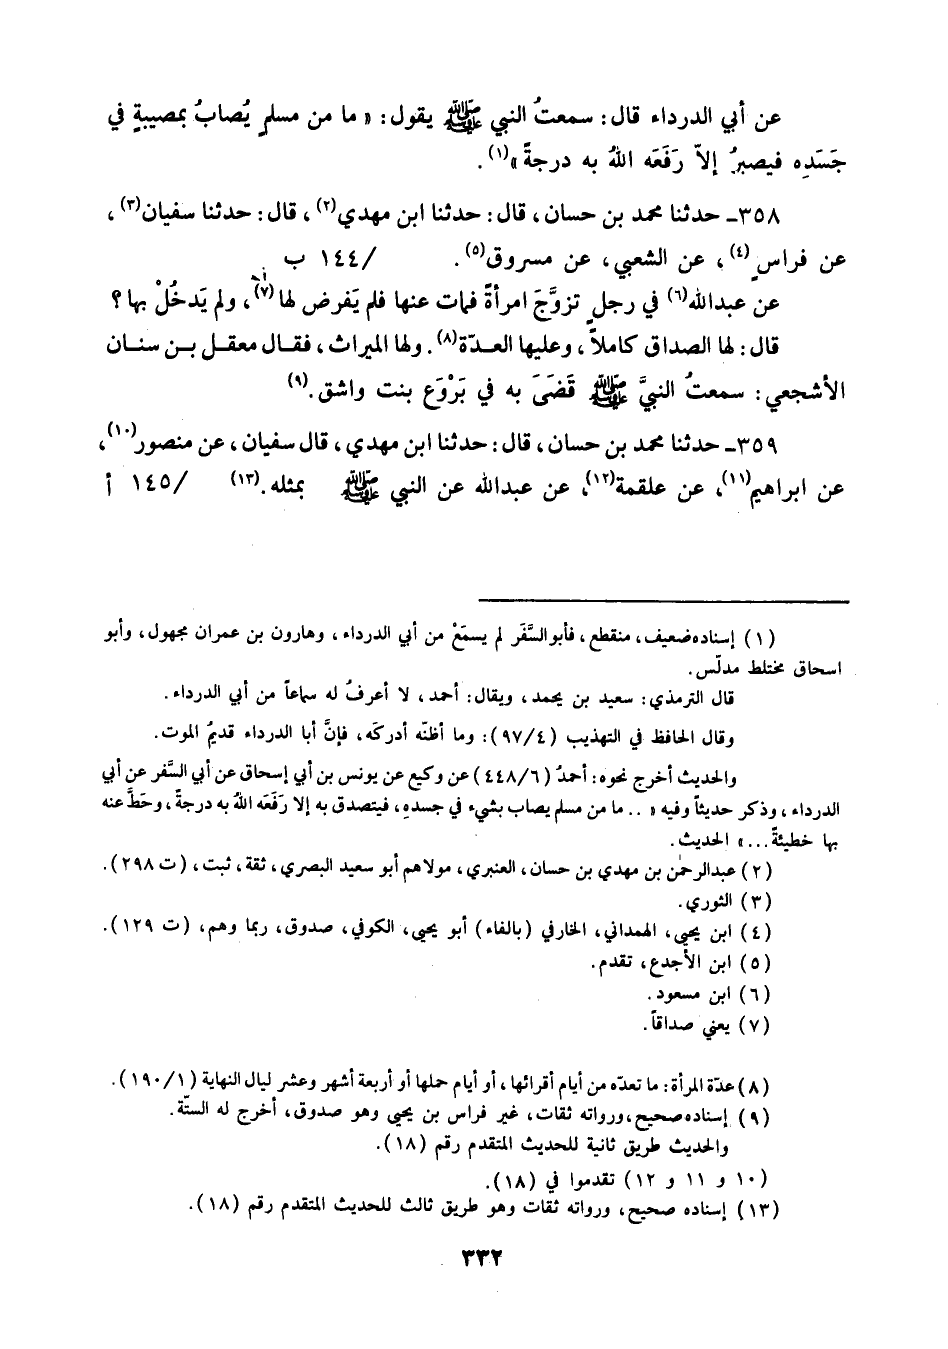 عن أبي الدرداء قال: سمعتُ النبي ﷺ يقول: « ما من مسلمٍ يُصابُ بمصيبةٍ في
جَسَدِه فيصبرُ إلاّ رَفَعَه اللهُ به درجةً »(١).
٣٥٨ـ حدثنا محمد بن حسان، قال: حدثنا ابن مهدي(٢)، قال: حدثنا سفيان(٣)،
عن فراسٍ(٤)، عن الشعبي، عن مسروق(٥). /١٤٤ ب
عن عبدالله(٦) في رجلٍ تزوَّجَ امرأةً فمات عنها فلم يَفرض لها(٧)، ولم يَدخُلْ بها؟
قال: لها الصداق كاملاً، وعليها العـدّة(٨). ولها الميراث، فقـال معقـل بـن سنـان
الأشجعي: سمعتُ النبيَّ ﷺ قَضَىَ به في بَرْوَع بنت واشق.(٩)
٣٥٩ـ حدثنا محمد بن حسان، قال: حدثنا ابن مهدي، قال سفيان، عن منصور(١٠)،
عن ابراهيم(١١)، عن علقمة(١٢)، عن عبدالله عن النبي ﷺ بمثله.(١٣) /١٤٥ أ
(١) إسناده ضعيف، منقطع، فأبو السَّفَر لم يسمَعْ من أبي الدرداء، وهارون بن عمران مجهول، وأبو
اسحاق مختلط مدلّس.
قال الترمذي: سعيد بن يحمد، ويقال: أحمد، لا أعرفُ له سماعاً من أبي الدرداء.
وقال الحافظ في التهذيب (٩٧/٤): وما أظنّه أدركَه، فإنَّ أبا الدرداء قديمُ الموت.
والحديث أخرج نحوه: أحمدُ (٤٤٨/٦) عن وكيع عن يونس بن أبي إسحاق عن أبي السَّفر عن أبي
الدرداء، وذكر حديثاً وفيه « .. ما من مسلم يصاب بشيء في جسدهِ، فيتصدق به إلا رَفَعَه اللهُ به درجةً، وحَطَّ عنه
بها خطيئةً...» الحديث.
(٢) عبدالرحمٰن بن مهدي بن حسان، العنبري، مولاهم أبو سعيد البصري، ثقة، ثبت، (ت ٢٩٨).
(٣) الثوري.
(٤) ابن يحيى، الهمداني، الخارفي (بالفاء) أبو يحيى، الكوفي، صدوق، ربما وهم، (ت ١٢٩).
(٥) ابن الأجدع، تقدم.
(٦) ابن مسعود.
(٧) يعني صداقاً.
(٨) عدّة المرأة: ما تعدّه من أيام أقرائها، أو أيام حملها أو أربعة أشهر وعشر ليال النهاية (١٩٠/١).
(٩) إسناده صحيح، ورواته ثقات، غير فراس بن يحيى وهو صدوق، أخرج له الستّة.
والحديث طريق ثانية للحديث المتقدم رقم (١٨).
(١٠ و ١١ و ١٢) تقدموا في (١٨).
(١٣) إسناده صحيح، ورواته ثقات وهو طريق ثالث للحديث المتقدم رقم (١٨).
٣٣٢